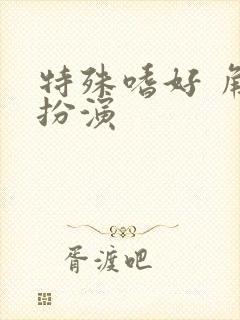 特殊嗜好 角
扮演
胥渡吧